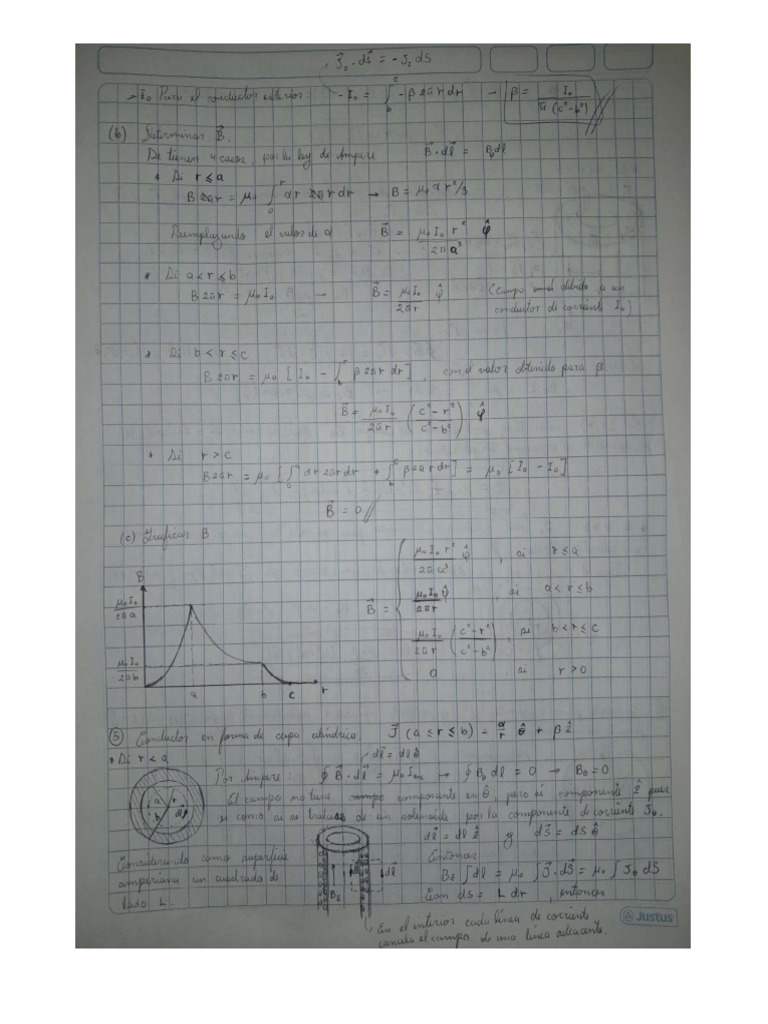 J₂ · dS = - J₂ dS
→ I₀ Para el conductor exterior: -I₀ = ∫_b^c -β2πrdr → β = I₀ / π(c²-b²)
(b) Determinar B.
Se tienen 4 casos, por la ley de Ampere B·dl = Bφdl
* Si r≤a
B2πr = μ₀ ∫_0^r αr 2πrdr → B = μ₀αr²/3
Reemplazando el valor de α B = μ₀I₀r² / 2πa³ φ̂
* Si a<r≤b
B2πr = μ₀I₀ — B = μ₀I₀ / 2πr φ̂ (Campo debido a un
conductor de corriente I₀)
* Si b<r≤c
B2πr = μ₀ [I₀ - ∫_b^r β2πrdr], con el valor obtenido para β.
B = μ₀I₀ / 2πr (c²-r² / c²-b²) φ̂
* Si r>c
B2πr = μ₀ [∫_0^a αr2πrdr + ∫_b^c β2πrdr] = μ₀ [I₀-I₀]
B = 0
(c) Graficar B
B = { μ₀I₀r² / 2πa³ φ̂, si r≤a
μ₀I₀ / 2πr φ̂, si a<r≤b
μ₀I₀ / 2πr (c²-r² / c²-b²), si b<r≤c
0, si r>0
B
μ₀I₀ / 2πa
μ₀I₀ / 2πb
a b c r
(5) Conductor en forma de capa cilíndrica: J (a≤r≤b) = α/r θ̂ + βẑ
* Si r<a
dl = dl θ̂
Por Ampere: ∮B·dl = μ₀I_enc → ∮Bθ dl = 0 → Bθ=0
El campo no tiene componente en θ̂, pero si componente ẑ pues
es como si se tratara de un solenoide por la componente de corriente Jθ.
a r b dl
dl = dl ẑ y dS = dS θ̂
Considerando como superficie
Entonces
amperiana un cuadrado de
Bz ∫dl = μ₀ ∫J·dS = μ₀ ∫Jθ dS
lado L.
Bz dl
Con dS = L dr, entonces
En el interior cada línea de corriente
cancela el campo de una línea adyacente.
Justus